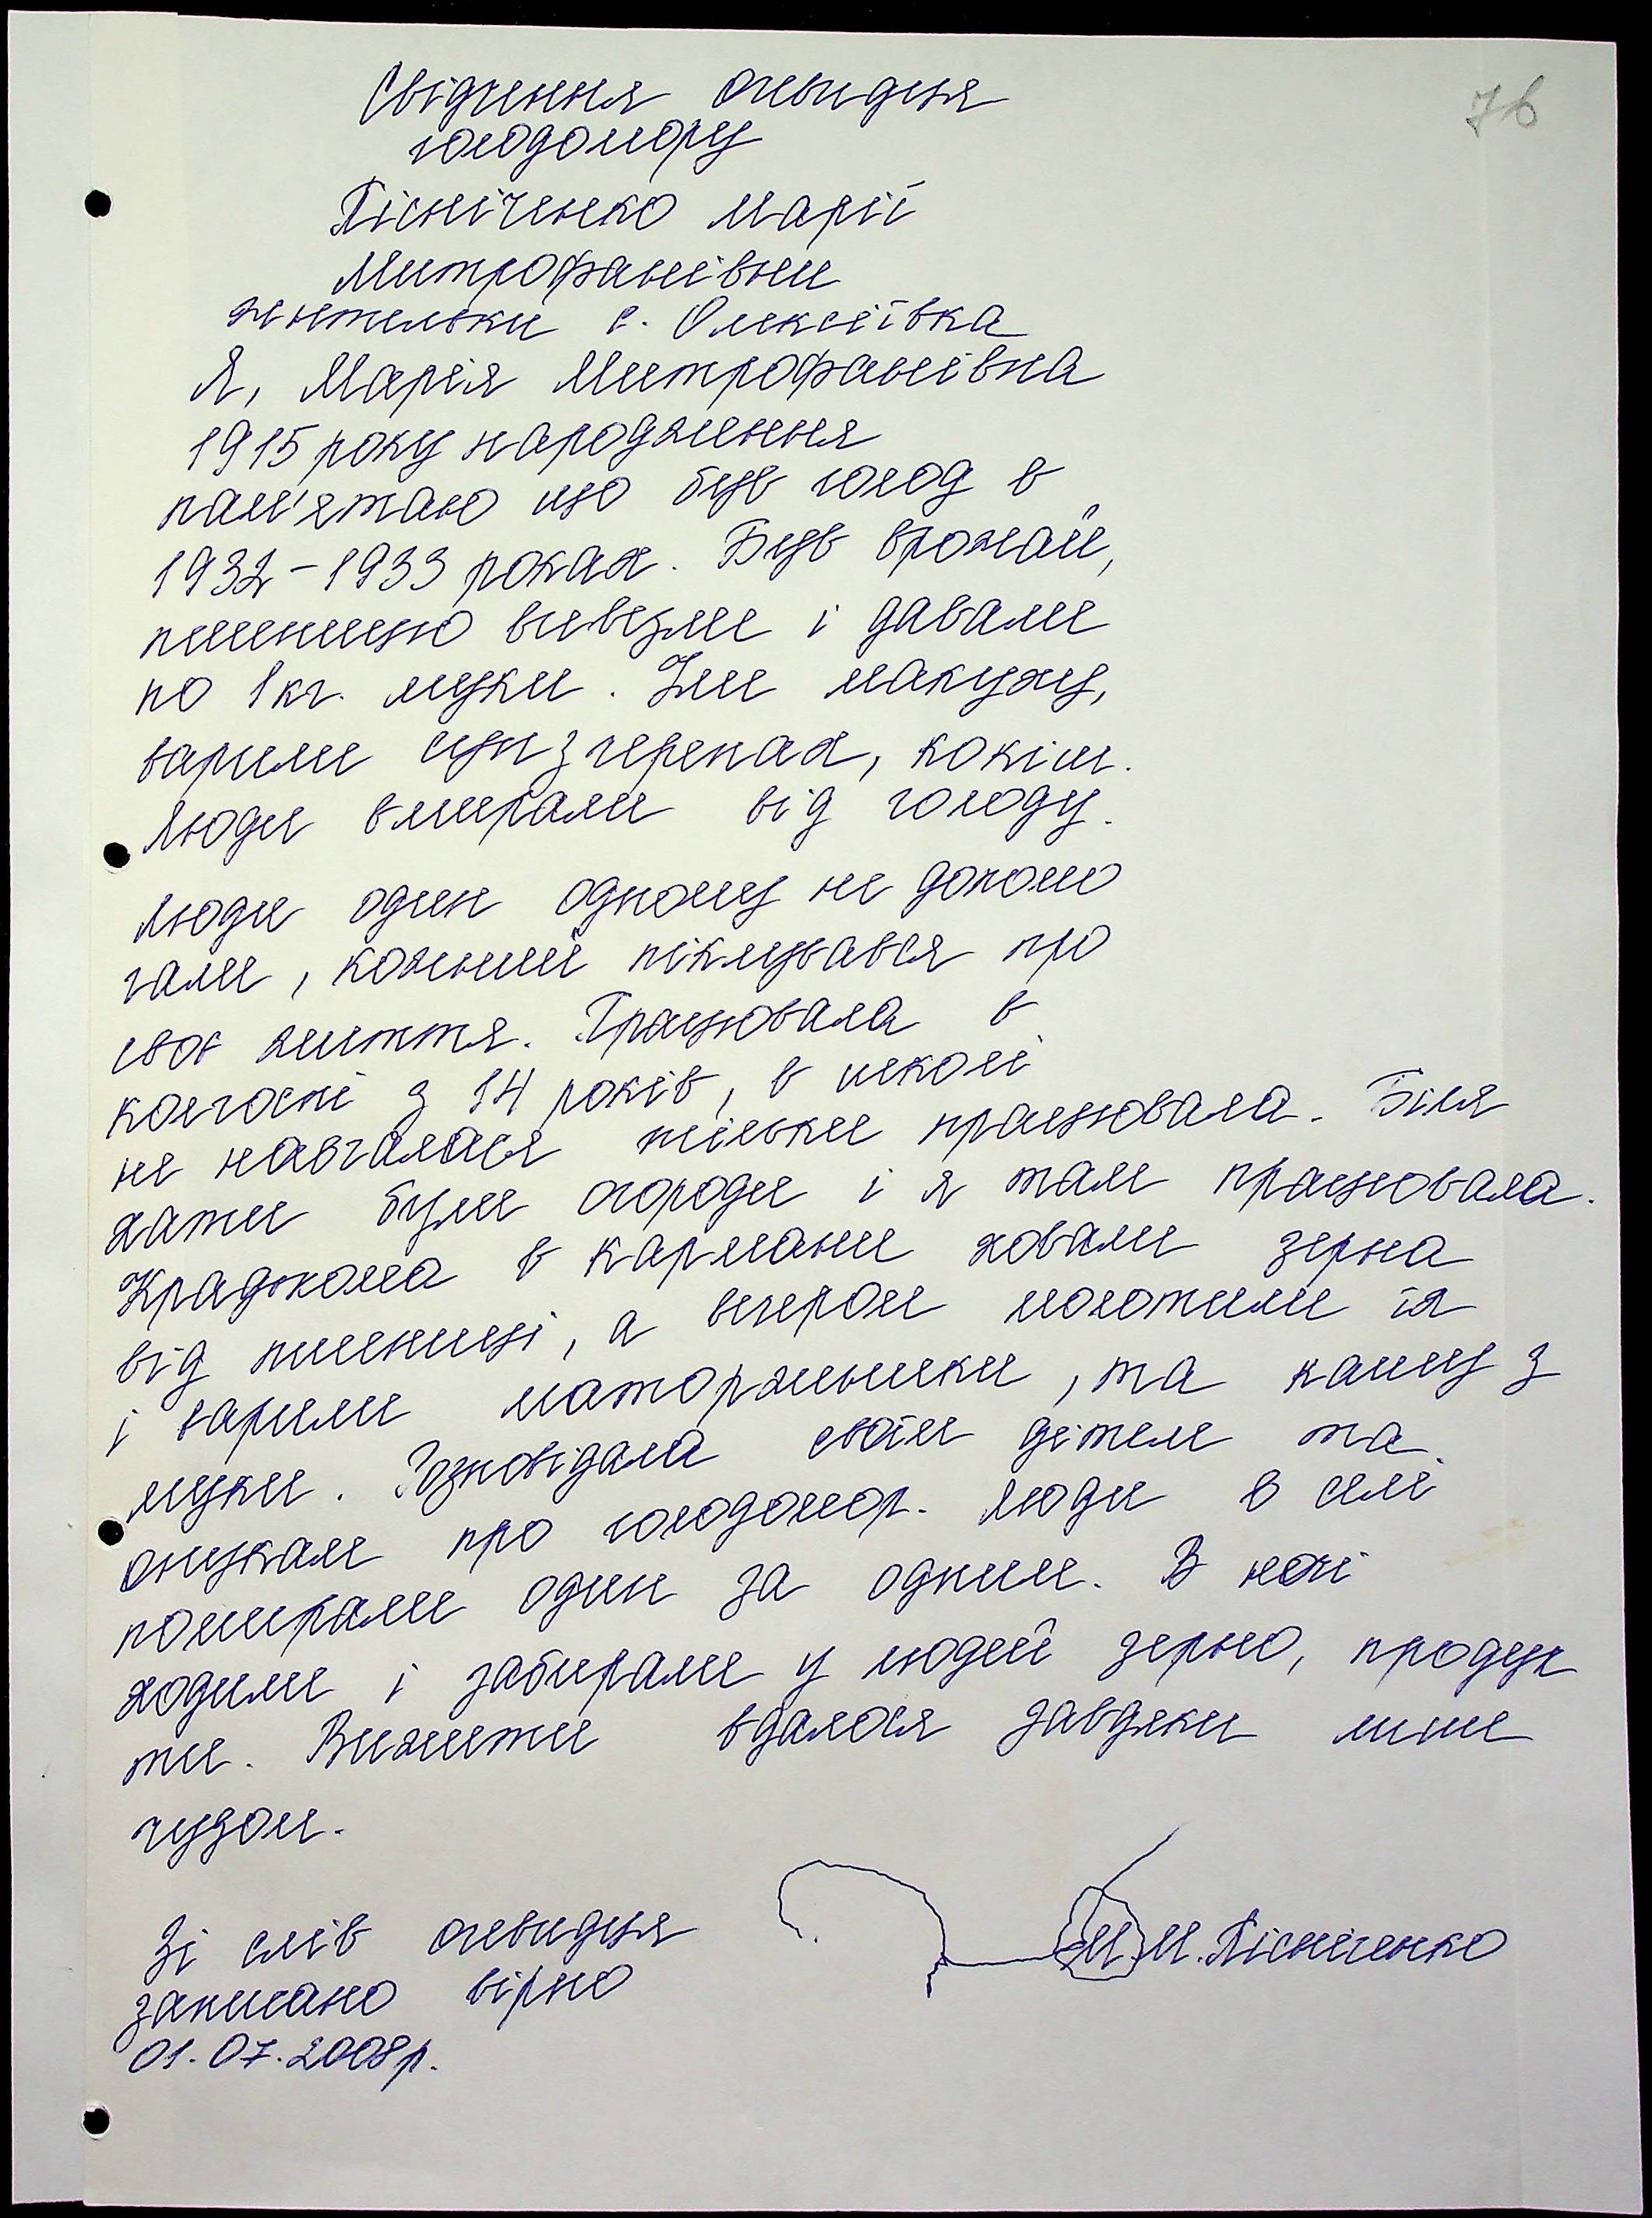 76
Свідчення очевидця
голодомору
Пісніченко Марії
Митрофанівни
жительки с. Олексіївка
Я, Марія Митрофанівна
1915 року народження
пам'ятаю що був голод в
1932-1933 роках. Був врожай,
пшеницю вивезли і давали
по 1 кг. муки. Їли макуху,
варили суп з черепах, кокіш.
Люди вмирали від голоду.
Люди один одному не допомо
гали, кожний піклувався про
своє життя. Працювала в
колгоспі з 14 років, в школі
не навчалася тільки працювала. Біля
хати були огороди і я там працювала.
Крадькома в кармани ховали зерна
від пшениці, а вечером молотили їх
і варили маторженики, та кашу з
муки. Розповідала своїм дітям та
онукам про голодомор. Люди в селі
помирали один за одним. В ночі
ходили і забирали у людей зерно, продук
ти. Вижити вдалося завдяки лише
чудом.
Зі слів очевидця
записано вірно
01.07.2008р.
М.М. Пісніченко